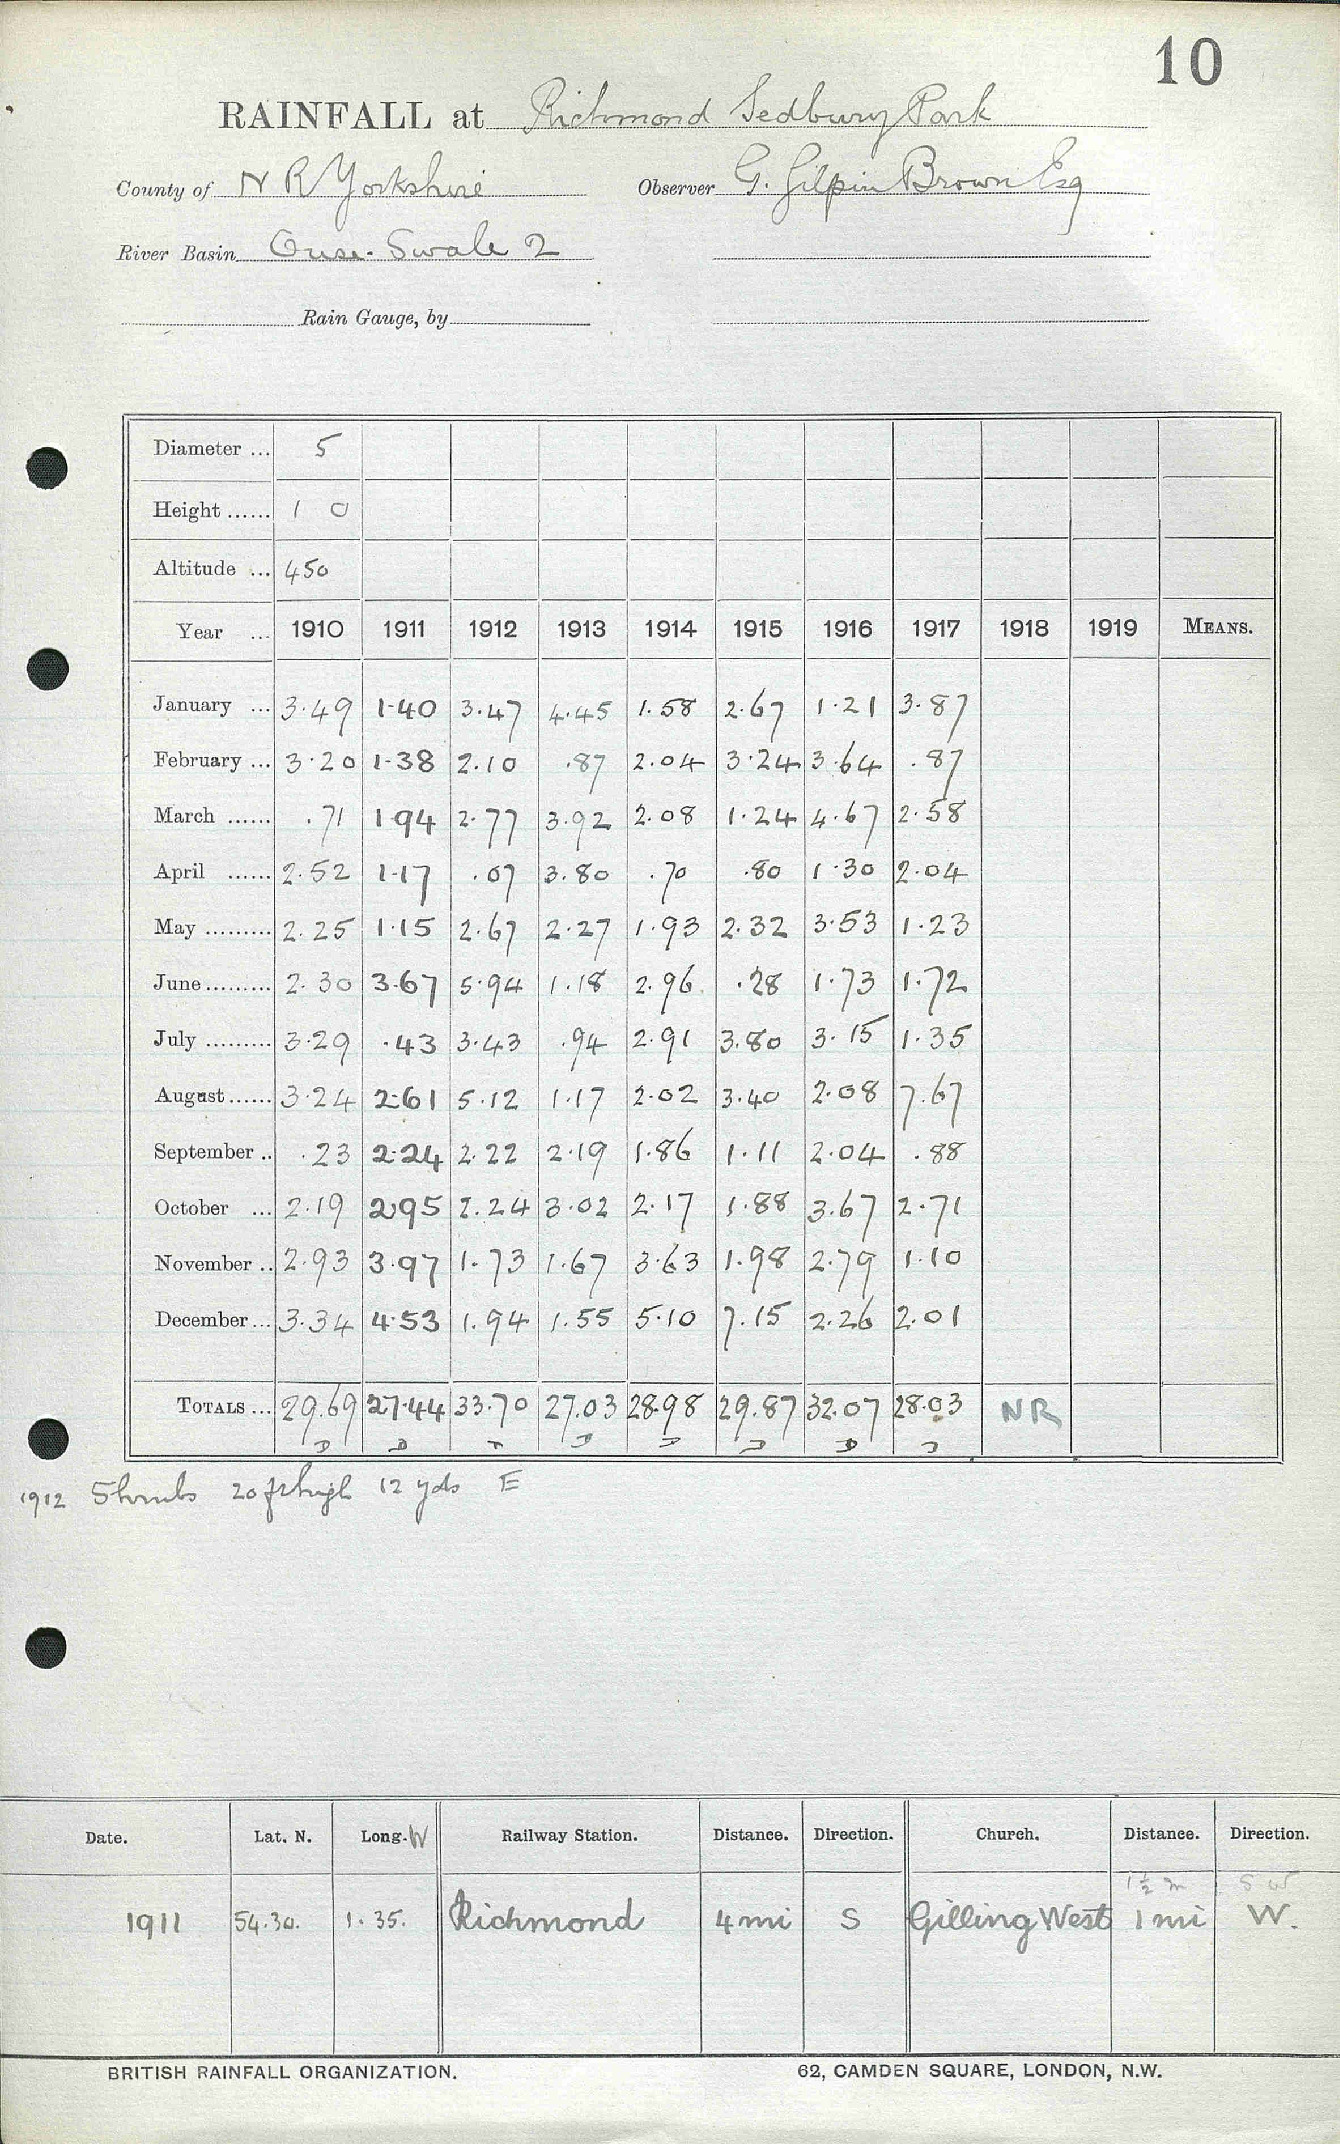 10
RAINFALL at Richmond Sedbury Park
County of N R Yorkshire Observer G. Gilpin Brown Esq
River Basin Ouse. Swale 2
Rain Gauge, by
Diameter ... 5
Height ...... 1 0
Altitude ... 450
Year ... 1910 1911 1912 1913 1914 1915 1916 1917 1918 1919 MEANS.
January ... 3.49 1.40 3.47 4.45 1.58 2.67 1.21 3.87
February ... 3.20 1.38 2.10 .87 2.04 3.24 3.64 .87
March ...... .71 1.94 2.77 3.92 2.08 1.24 4.67 2.58
April ...... 2.52 1.17 .07 3.80 .70 .80 1.30 2.04
May ......... 2.25 1.15 2.67 2.27 1.93 2.32 3.53 1.23
June ......... 2.30 3.67 5.94 1.18 2.96 .28 1.73 1.72
July ......... 3.29 .43 3.43 .94 2.91 3.80 3.15 1.35
August ...... 3.24 2.61 5.12 1.17 2.02 3.40 2.08 7.67
September .. .23 2.24 2.22 2.19 1.86 1.11 2.04 .88
October ... 2.19 2.95 2.24 3.02 2.17 1.88 3.67 2.71
November .. 2.93 3.97 1.73 1.67 3.63 1.98 2.79 1.10
December ... 3.34 4.53 1.94 1.55 5.10 7.15 2.26 2.01
TOTALS ... 29.69 27.44 33.70 27.03 28.98 29.87 32.07 28.03 NR
1912 Shrubs 20 ft high 12 yds E
Date. Lat. N. Long. W Railway Station. Distance. Direction. Church. Distance. Direction.
1½ m SW
1911 54.30. 1.35. Richmond 4 mi S Gilling West 1 mi W.
BRITISH RAINFALL ORGANIZATION. 62, CAMDEN SQUARE, LONDON, N.W.